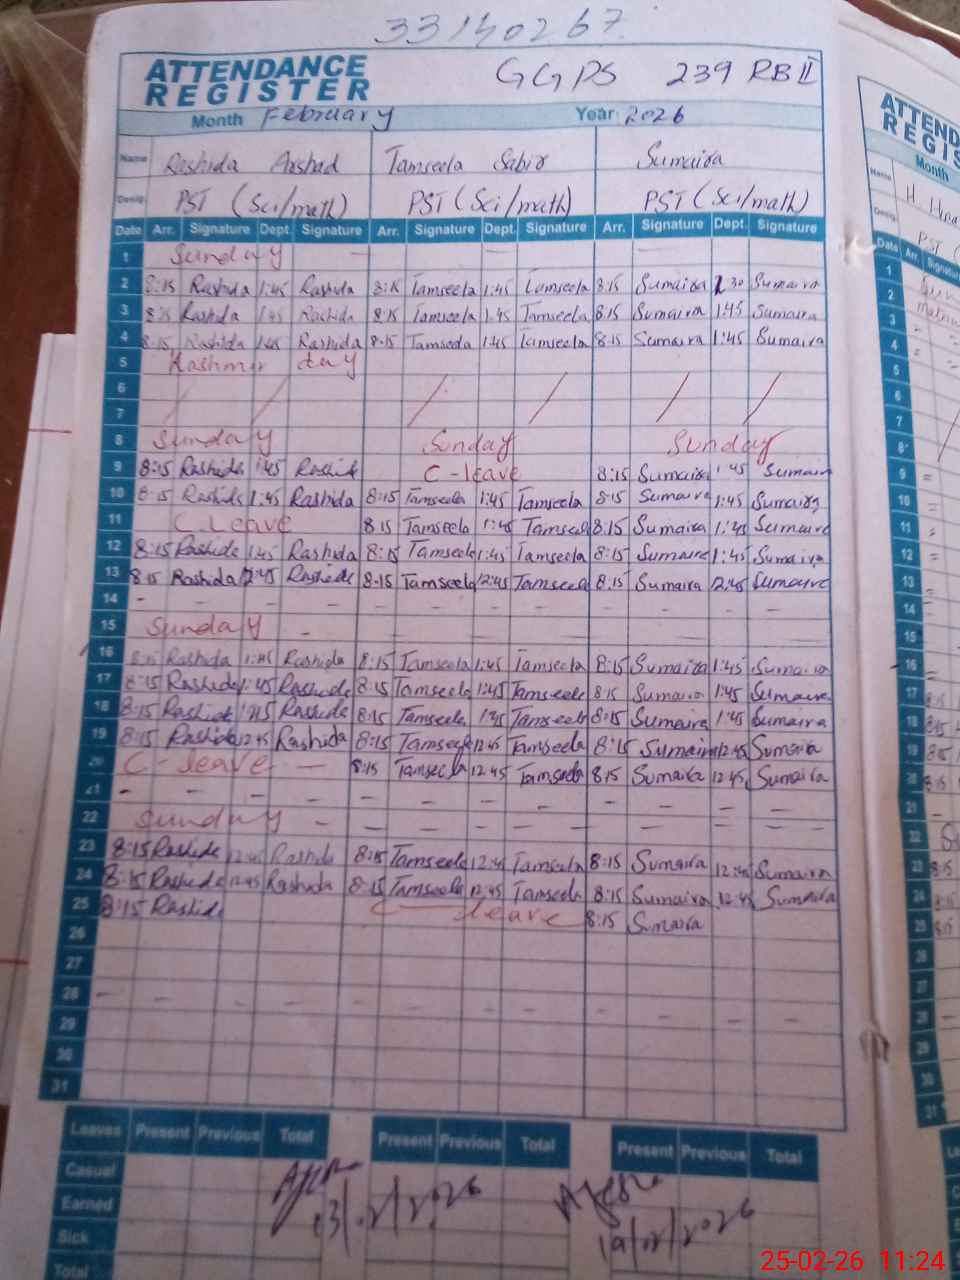 33140267
ATTENDANCE REGISTER GGPS 239 RB II
Month February Year 2026
Name Rashida Arshad Tamseela Sabir Sumaira
Desig. PST (Sci/math) PST (Sci/math) PST (Sci/math)
Date Arr. Signature Dept. Signature Arr. Signature Dept. Signature Arr. Signature Dept. Signature
1 Sunday
2 8:15 Rashida 1:45 Rashida 8:15 Tamseela 1:45 Tamseela 8:15 Sumaira 30 Sumaira
3 8:15 Rashida 1:45 Rashida 8:15 Tamseela 1:45 Tamseela 8:15 Sumaira 1:45 Sumaira
4 8:15 Rashida 1:45 Rashida 8:15 Tamseela 1:45 Tamseela 8:15 Sumaira 1:45 Sumaira
5 Kashmir day
6
7
8 Sunday Sunday Sunday
9 8:15 Rashida 1:45 Rashid C-leave 8:15 Sumaira 1:45 Sumair
10 8:15 Rashida 1:45 Rashida 8:15 Tamseela 1:45 Tamseela 8:15 Sumaira 1:45 Sumaira
11 C Leave 8:15 Tamseela 1:45 Tamseel 8:15 Sumaira 1:45 Sumaira
12 8:15 Rashida 1:45 Rashida 8:15 Tamseela 1:45 Tamseela 8:15 Sumaira 1:45 Sumaira
13 8:15 Rashida 12:45 Rashida 8:15 Tamseela 12:45 Tamseela 8:15 Sumaira 12:45 Sumaira
14 - - - - - - - - - - - -
15 Sunday -
16 8:15 Rashida 1:45 Rashida 8:15 Tamseela 1:45 Tamseela 8:15 Sumaira 1:45 Sumaira
17 8:15 Rashida 1:45 Rashida 8:15 Tamseela 1:45 Tamseela 8:15 Sumaira 1:45 Sumaira
18 8:15 Rashida 1:45 Rashida 8:15 Tamseela 1:45 Tamseela 8:15 Sumaira 1:45 Sumaira
19 8:15 Rashida 12:45 Rashida 8:15 Tamseela 12:45 Tamseela 8:15 Sumaira 12:45 Sumaria
20 C-leave - 8:15 Tamseela 12:45 Tamseela 8:15 Sumaira 12:45 Sumaira
21 - - - - - - - - - - - -
22 Sunday - - - - - - - -
23 8:15 Rashida 12:45 Rashida 8:15 Tamseela 12:45 Tamseela 8:15 Sumaira 12:45 Sumaira
24 8:15 Rashida 12:45 Rashida 8:15 Tamseela 12:45 Tamseela 8:15 Sumaira 12:45 Sumaira
25 8:15 Rashid C leave 8:15 Sumaira
26
27
28 - - - - - - - - - - - -
29
30
31
Leaves Present Previous Total Present Previous Total Present Previous Total
Casual
Earned
Sick
Total
19/02/2026
ATTEND
REGIS
Month
Name
Desig.
PST
Date Arr. Signature
1
2
3
4
5
6
7
8
9
10
11
12
13
14
15
16
17
18
19
20
21
22
23
24
25
26
27
28
29
30
31
25-02-26 11:24